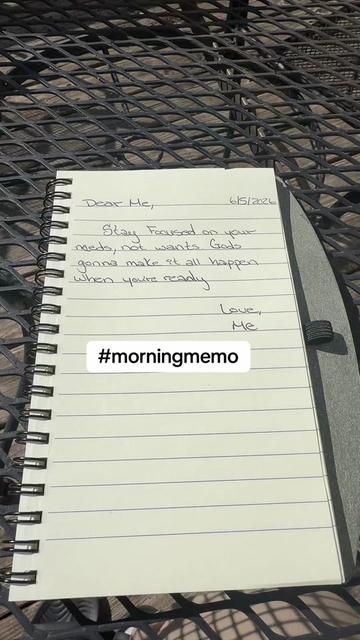 Dear Me, 6/5/2026
Stay Focused on your
needs, not wants Gods
gonna make it all happen
when you're ready
Love,
Me
#morningmemo